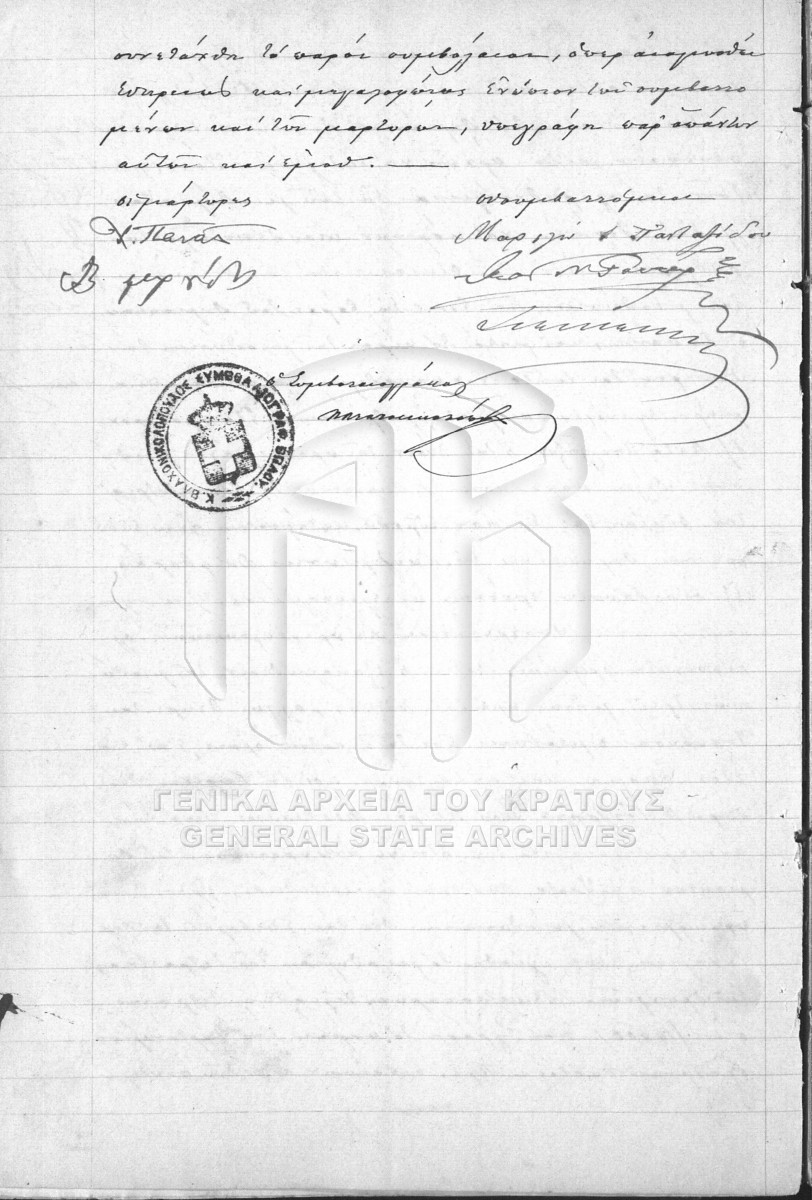 συνετάχθη το παρόν συμβόλαιον, όπερ αναγνωσθέν
ευκρινώς και μεγαλοφώνως ενώπιον των συμβαλλο
μένων και των μαρτύρων, υπεγράφη παρ' απάντων
αυτών και εμού.
οι μάρτυρες
οι συμβαλλόμενοι
Χ. Πανάς
Μαριγώ
Ο Συμβολαιογράφος
Κ. ΒΛΑΧΟΝΙΚΟΛΟΠΟΥΛΟΣ ΣΥΜΒΟΛΑΙΟΓΡΑΦ. ΒΩΛΟΥ.
ΓΕΝΙΚΑ ΑΡΧΕΙΑ ΤΟΥ ΚΡΑΤΟΥΣ
GENERAL STATE ARCHIVES